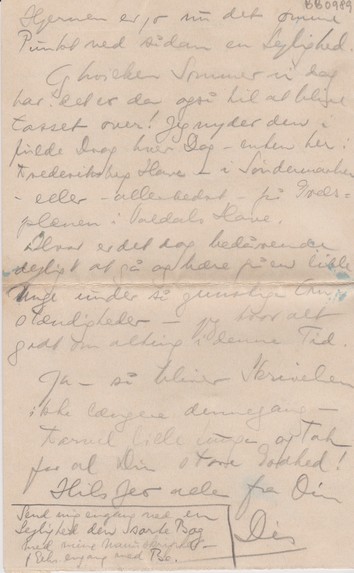 BB0989
Hjernen er jo nu det ømme
Punkt ved sådan en Lejlighed.
Og hvilken Sommer vi dog
har. det er da også til at blive
tosset over! Jeg nyder den i
fulde Drag hver Dag – enten her i
Frederiksberg Have – i Søndermarken
– eller – allerbedst – på Græs-
plænen i Have.
Hvor er det dog bedårende
dejligt at gå og bære på en lille
Unge under så gunstige Om-
stændigheder – jeg tror alt
godt om alting i denne Tid.
Ja – så bliver Skrivelsen
ikke længere denne gang –
Farvel lille og Tak
for al Din store Godhed!
Hils Jer alle fra Din
Dis
Send mig engang ved en
Lejlighed den sorte Bog
med mine
engang med